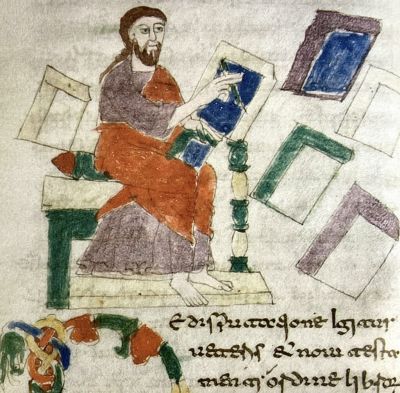 E disputatione igitur
ueteris & noui testa
menti ordine libror